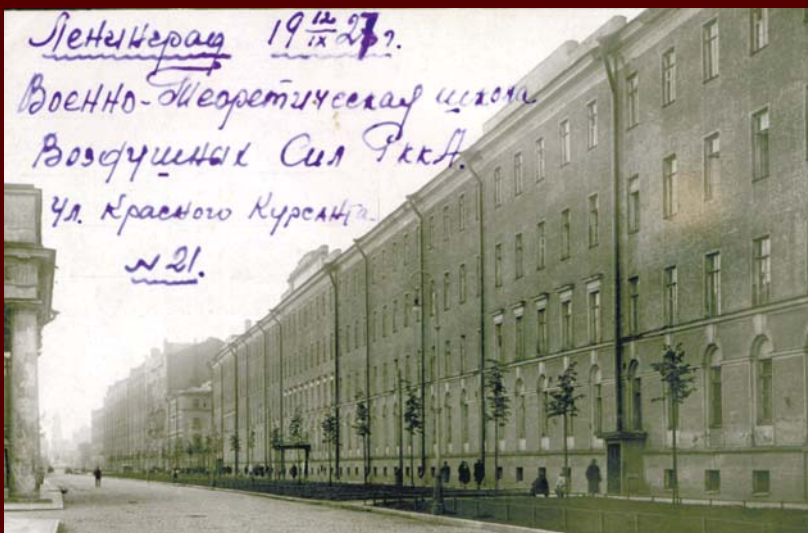 Ленинград 19 12/IX 27 г.
Военно-Теоретическая школа
Воздушных Сил РККА.
Ул. Красного Курсанта
№ 21.